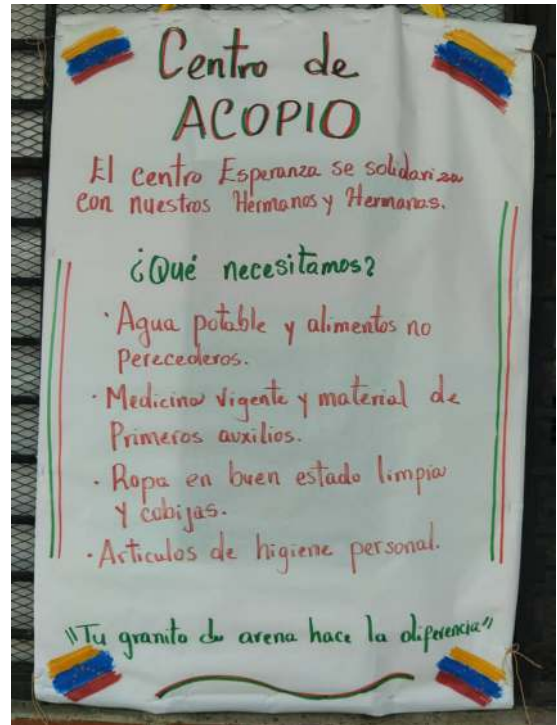 Centro de
ACOPIO
El centro Esperanza se solidariza
con nuestros Hermanos y Hermanas.
¿Qué necesitamos?
· Agua potable y alimentos no
perecederos.
· Medicina vigente y material de
Primeros auxilios.
· Ropa en buen estado limpia
y cobijas.
· Articulos de higiene personal.
"Tu granito de arena hace la diferencia"